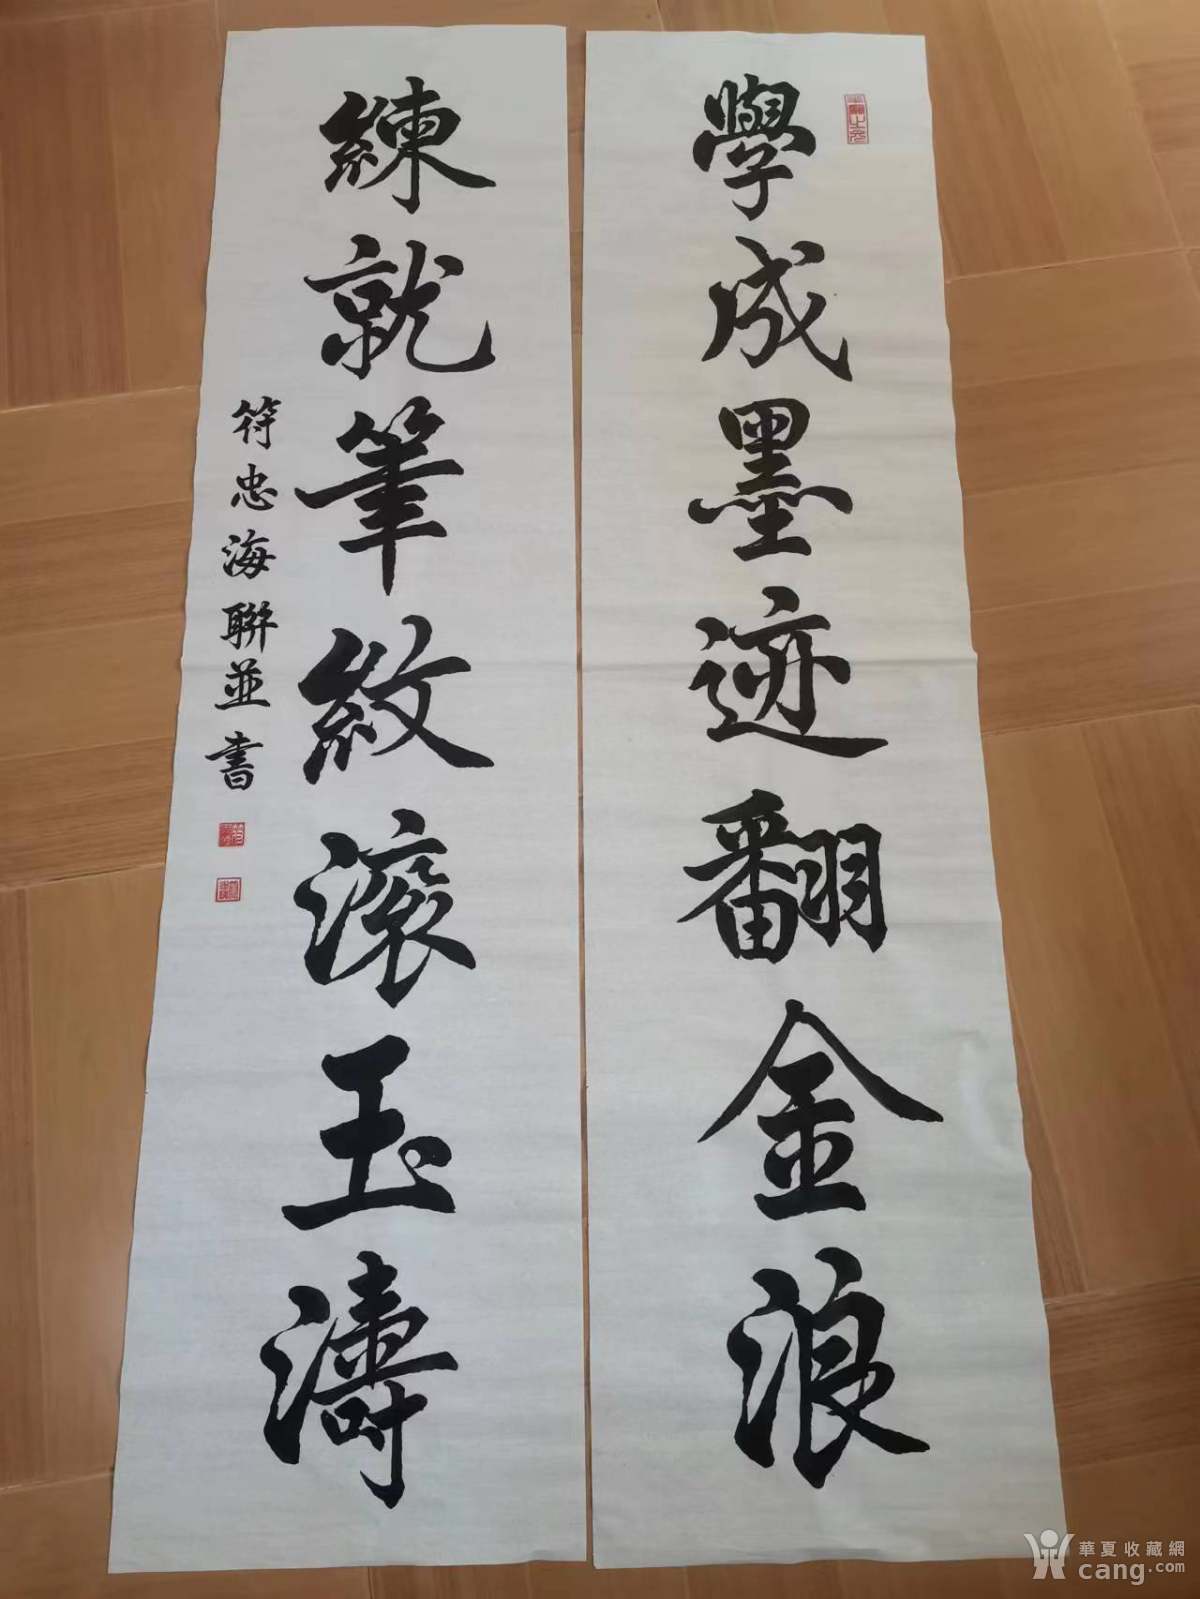 學成墨迹翻金浪
練就筆紋滾玉濤
符忠海聯並書
華夏收藏網
cang.com